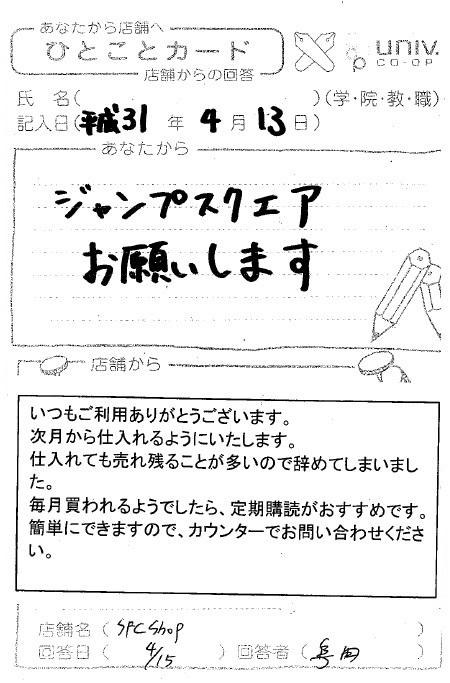 あなたから店舗へ
ひとことカード
店舗からの回答
univ.
CO-OP
氏 名( )(学・院・教・職)
記入日(平成31 年 4 月 13 日)
あなたから
ジャンプスクエア
お願いします
店舗から
いつもご利用ありがとうございます。
次月から仕入れるようにいたします。
仕入れても売れ残ることが多いので辞めてしまいまし
た。
毎月買われるようでしたら、定期購読がおすすめです。
簡単にできますので、カウンターでお問い合わせくださ
い。
店舗名 ( SFC Shop )
回答日 ( 4/15 ) 回答者 ( )